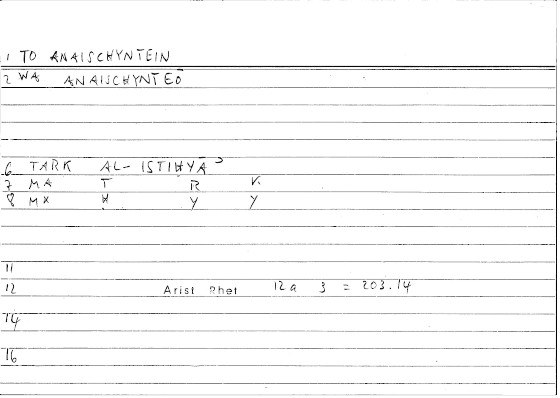 1 TO ANAISCHYNTEIN
2 WA ANAISCHYNTEO
6 TARK AL-ISTIḤYĀʾ
7 MA T R K
8 MX Ḥ Y Y
11
12 Arist Rhet 12a 3 = 203.14
14
16